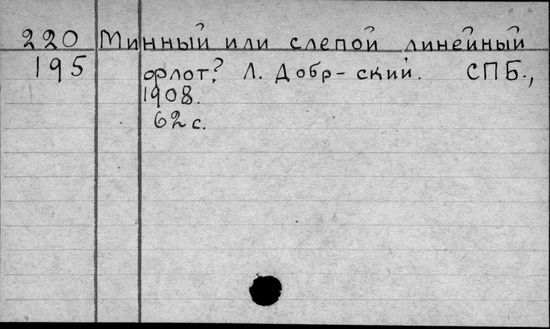 220 Минный или слепой линейный
195 флот? Л. Добр-ский. СПБ.,
1908.
62 с.